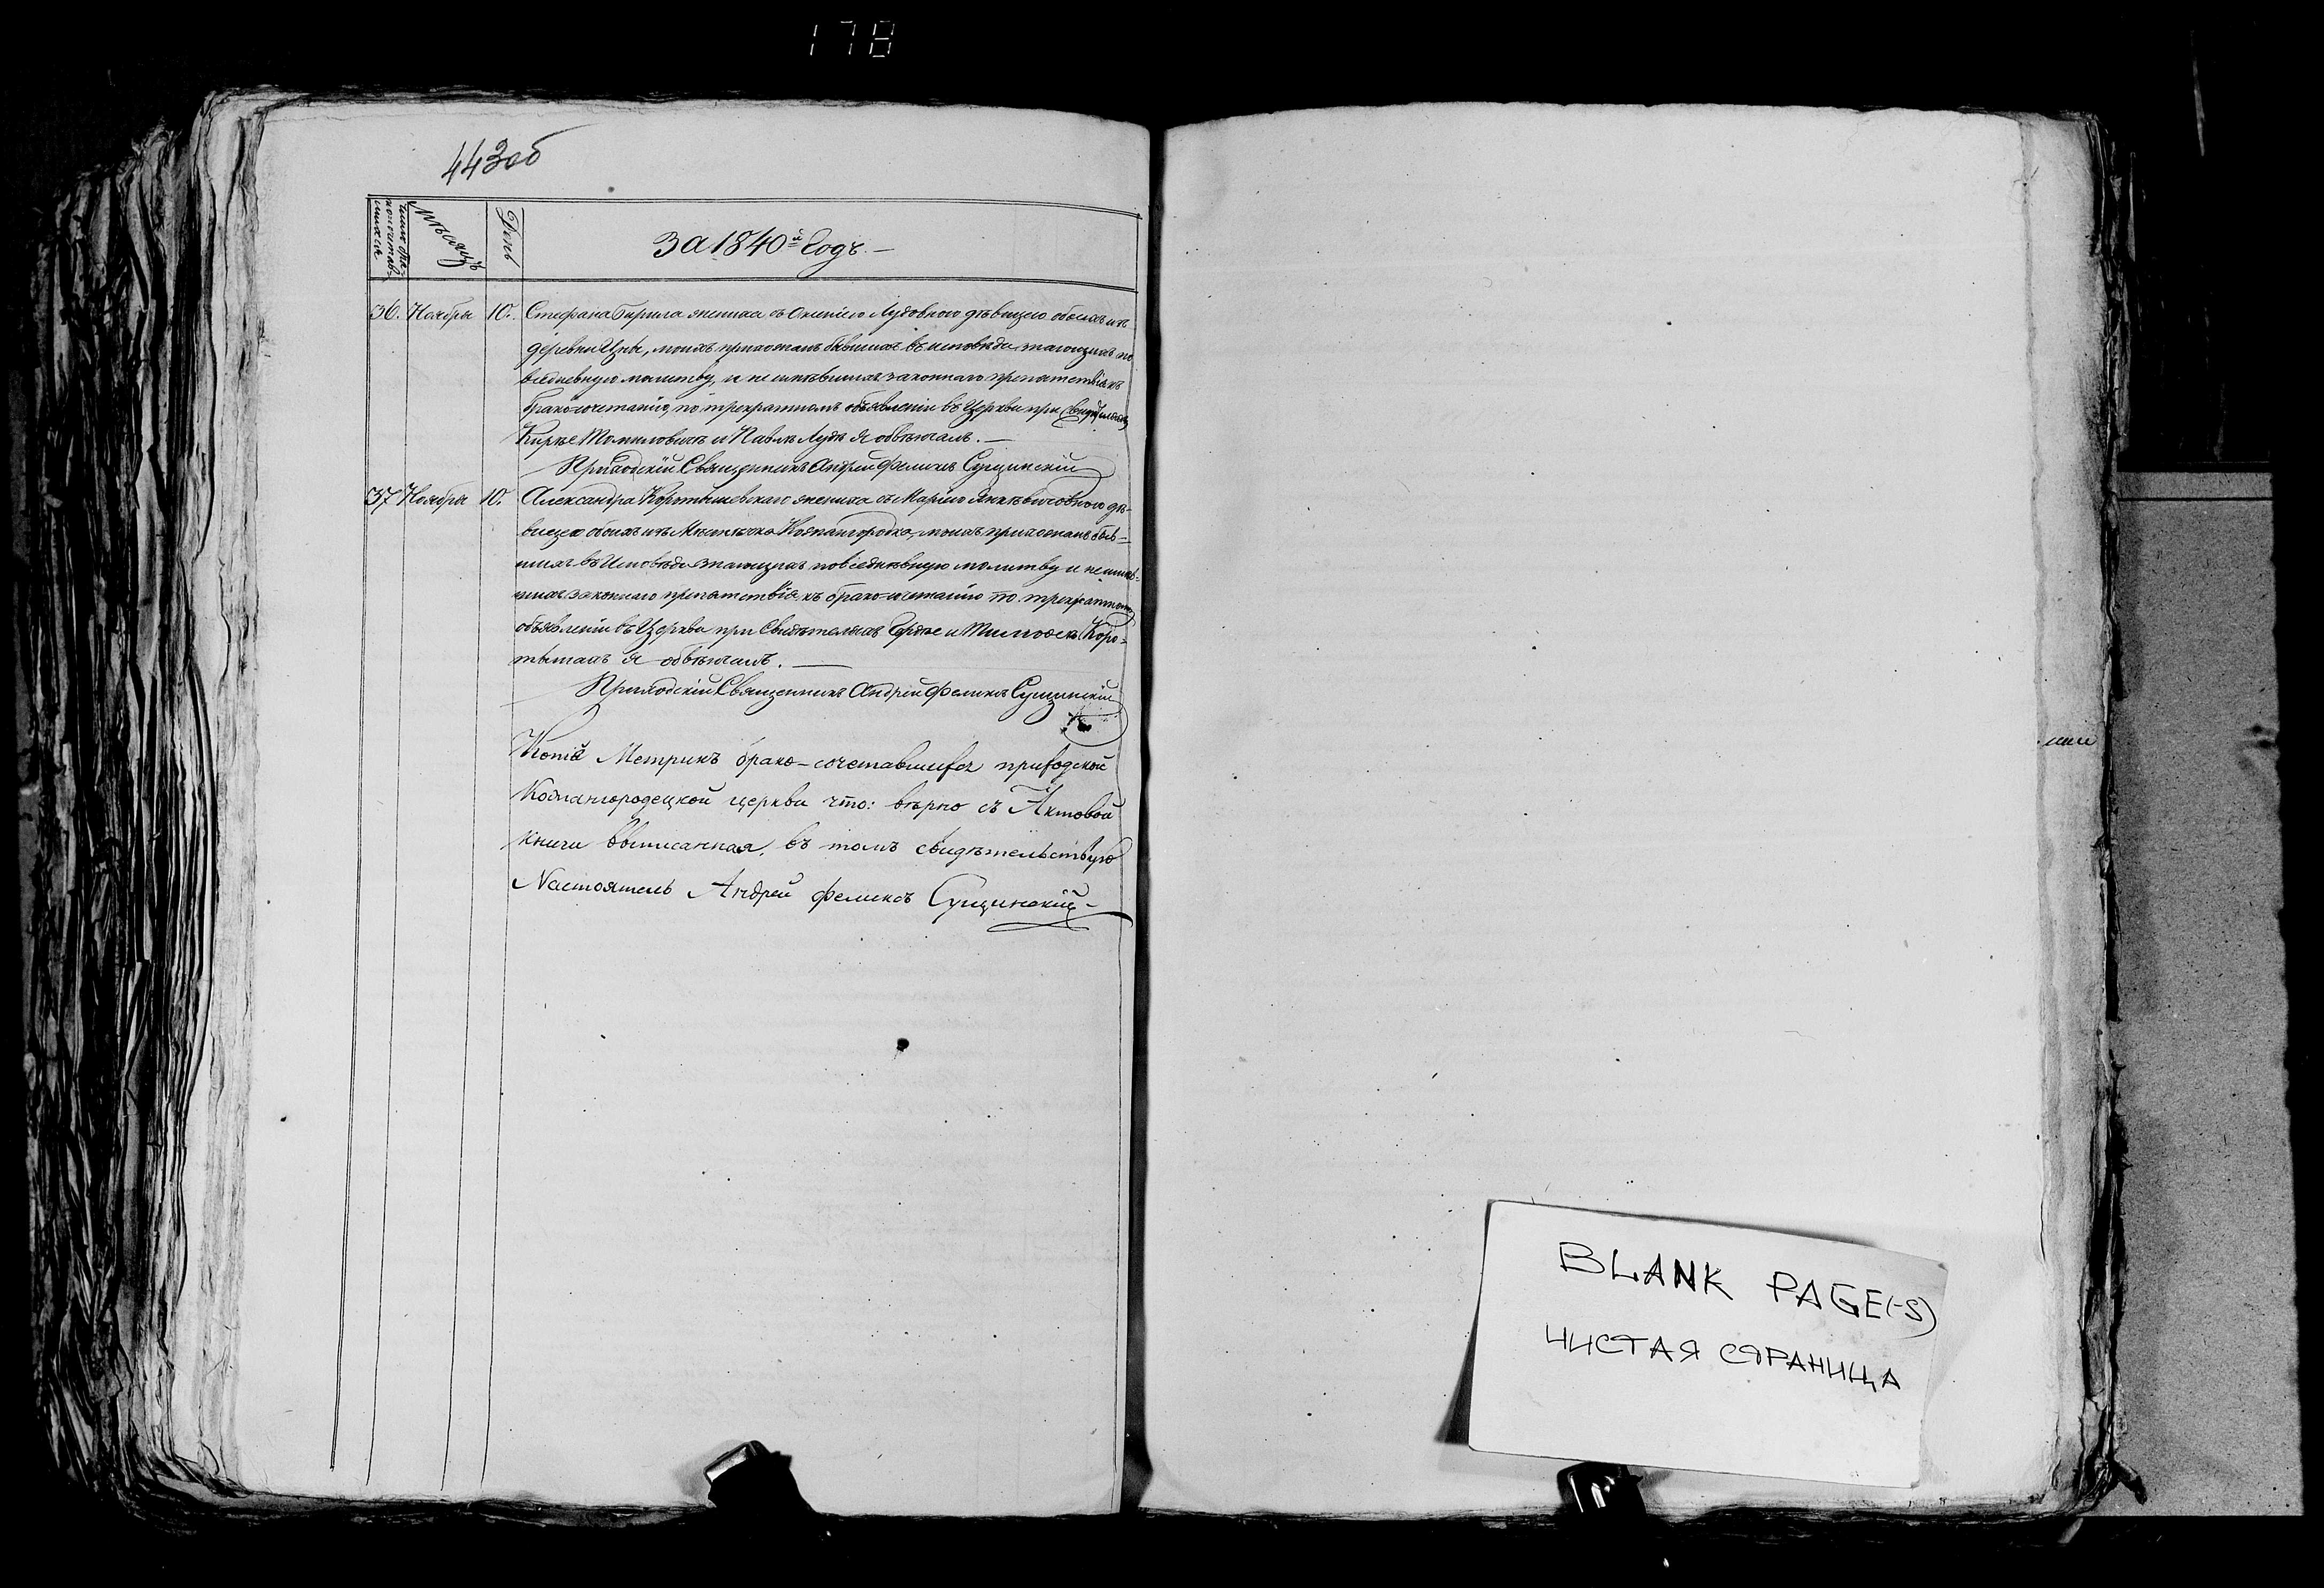 178
443 об
число бра-
косочетав-
шихся
Мѣсяцъ
День
За 1840й Годъ. —
36. Ноября 10. Стефана Кирила жениха съ Оксѣнiею Лудовною дѣвицею обоихъ изъ
деревни Цны, моихъ прихожанъ бывшихъ въ исповѣди знающихъ по
вседневную молитву, и не имѣвшихъ законнаго препятствiя къ
бракосочетанiю, по трекратномъ объявленiи въ Церкви при Свидѣтеляхъ
Кирѣе Томиловичѣ и Павлѣ Лудѣ я обвѣнчалъ. —
Приходскiй Священникъ Андрей Феликсъ Сущинскiй
37 Ноября 10. Александра Коротышевскаго жениха съ Марiею дѣ-
вицею обоихъ изъ Мѣстечка Кожангородка, моихъ прихожанъ быв-
шихъ въ Исповѣди знающихъ повседнѣвную молитву и не имѣв-
шихъ законнаго препятствiя къ брако-сочетанiю по трекратномъ
объявленiи въ Церкви при Свидѣтеляхъ и Тимоѳеѣ Коро-
тышахъ я обвѣнчалъ. —
Приходскiй Священникъ Андрей Феликсъ Сущинскiй
Копiя Метрикъ брако-сочетавшихся приходской
Кожангородецкой церкви что: вѣрно съ Актовой
книги выписанная, въ томъ свидѣтельствую
Настоятель Андрей Феликсъ Сущинскiй —
BLANK PAGE(-S)
ЧИСТАЯ СТРАНИЦА